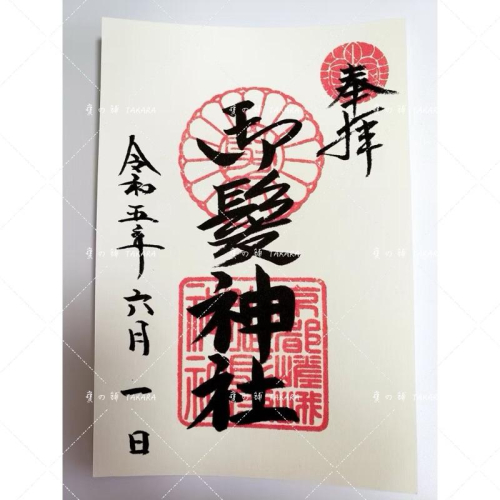 奉拝
御髪神社
京都嵯峨
御髪神社
令和五年六月一日